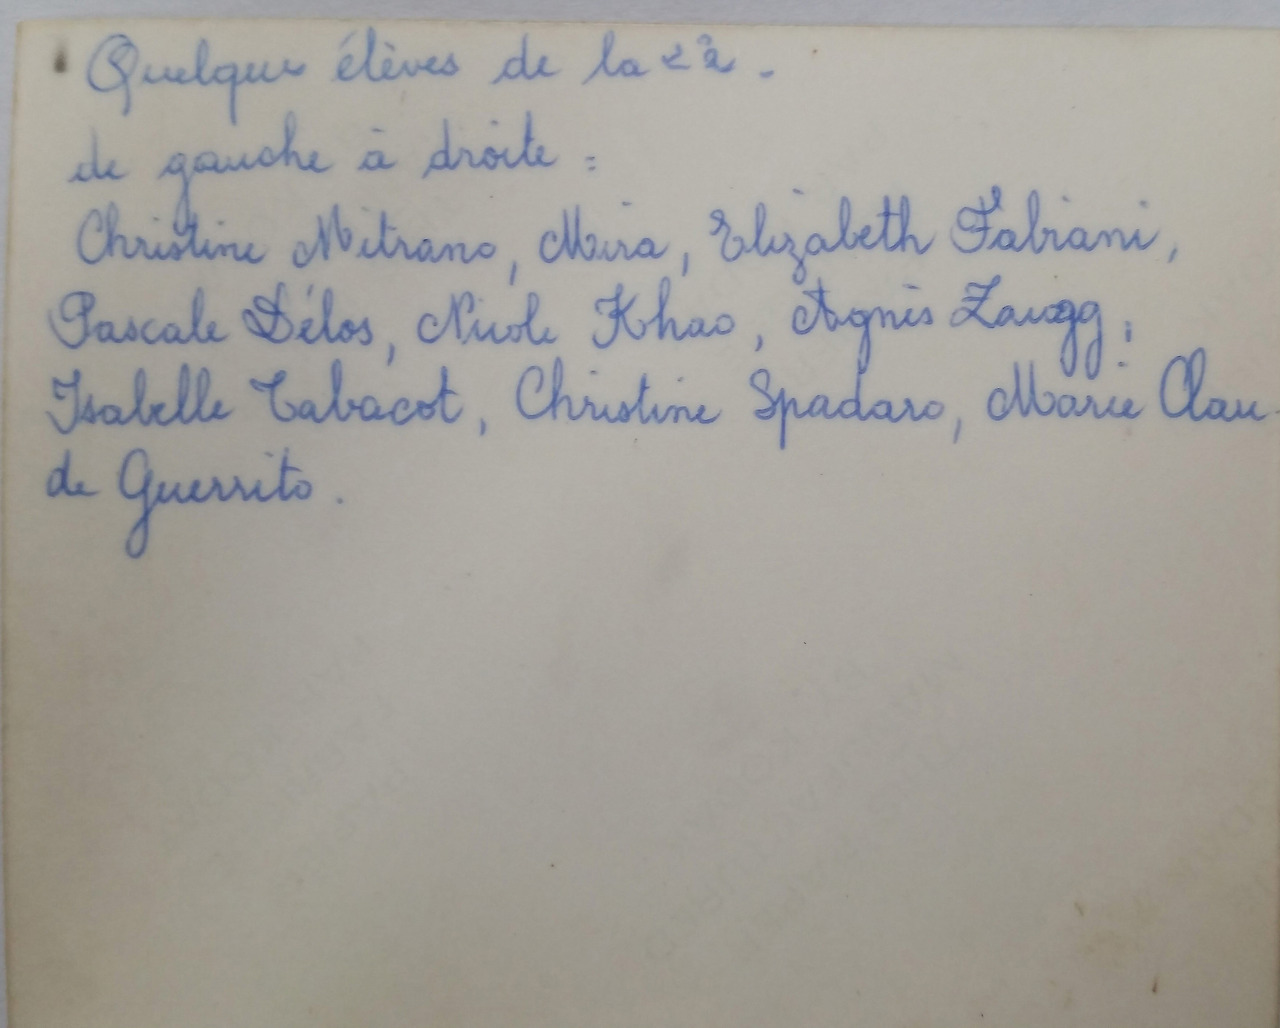 Quelques élèves de la 2è.
de gauche à droite :
Christine Mitrano, Mira, Elizabeth Fabiani,
Pascale Délos, Nicole Khao, Agnès Zaugg,
Isabelle Tabacot, Christine Spadaro, Marie Clau-
de Guerrito.